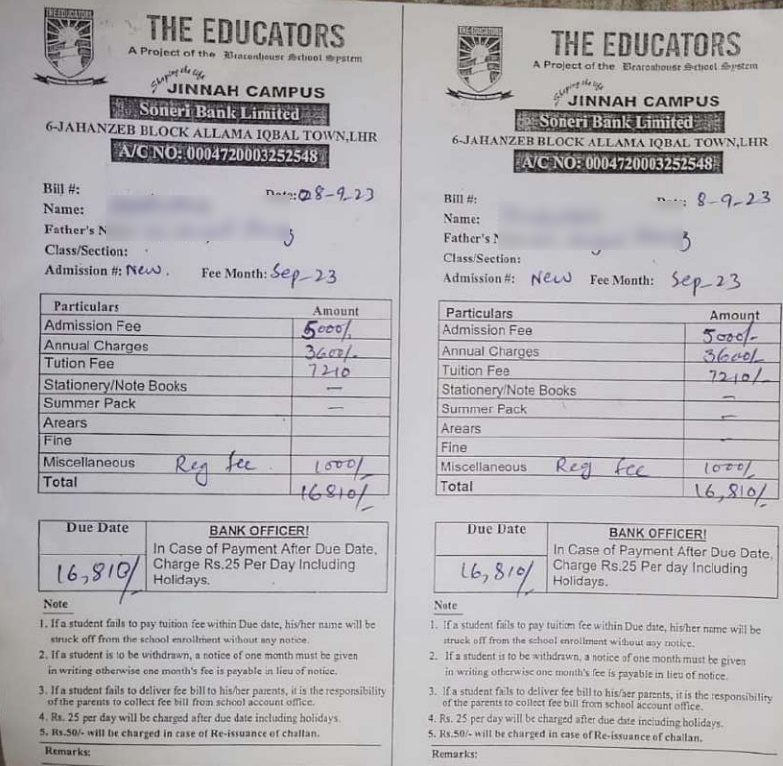 THE EDUCATORS
THE EDUCATORS
A Project of the Beaconhouse School System
Shaping the life
JINNAH CAMPUS
Soneri Bank Limited
6-JAHANZEB BLOCK ALLAMA IQBAL TOWN,LHR
A/C NO: 0004720003252548
Bill #: Date: 08-9-23
Name:
Father's N
Class/Section:
Admission #: New. Fee Month: Sep-23
Particulars Amount
Admission Fee 5000/-
Annual Charges 3600/-
Tution Fee 7210
Stationery/Note Books —
Summer Pack —
Arears
Fine
Miscellaneous Reg fee 1000/-
Total 16810/-
Due Date
16,810/
BANK OFFICER!
In Case of Payment After Due Date,
Charge Rs.25 Per Day Including
Holidays.
Note
1. If a student fails to pay tuition fee within Due date, his/her name will be
struck off from the school enrollment without any notice.
2. If a student is to be withdrawn, a notice of one month must be given
in writing otherwise one month's fee is payable in lieu of notice.
3. If a student fails to deliver fee bill to his/her parents, it is the responsibility
of the parents to collect fee bill from school account office.
4. Rs. 25 per day will be charged after due date including holidays.
5. Rs.50/- will be charged in case of Re-issuance of challan.
Remarks:
THE EDUCATORS
A Project of the Beaconhouse School System
Shaping the life
JINNAH CAMPUS
Soneri Bank Limited
6-JAHANZEB BLOCK ALLAMA IQBAL TOWN,LHR
A/C NO: 0004720003252548
Bill #: 8-9-23
Name:
Father's
Class/Section:
Admission #: New Fee Month: Sep-23
Particulars Amount
Admission Fee 5000/-
Annual Charges 3600/-
Tuition Fee 7210/-
Stationery/Note Books —
Summer Pack —
Arears —
Fine
Miscellaneous Reg fee 1000/-
Total 16,810/-
Due Date
16,810/
BANK OFFICER!
In Case of Payment After Due Date,
Charge Rs.25 Per day Including
Holidays.
Note
1. If a student fails to pay tuition fee within Due date, his/her name will be
struck off from the school enrollment without any notice.
2. If a student is to be withdrawn, a notice of one month must be given
in writing otherwise one month's fee is payable in lieu of notice.
3. If a student fails to deliver fee bill to his/her parents, it is the responsibility
of the parents to collect fee bill from school account office.
4. Rs. 25 per day will be charged after due date including holidays.
5. Rs.50/- will be charged in case of Re-issuance of challan.
Remarks: